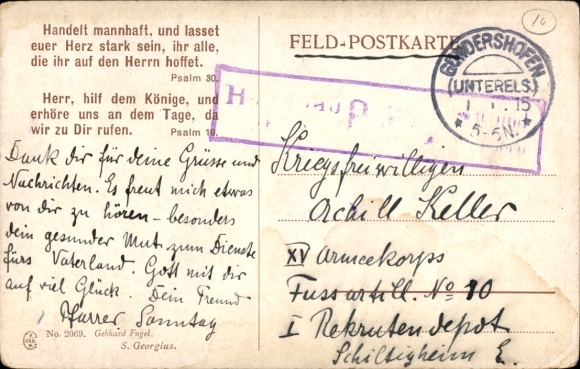 Handelt mannhaft, und lasset
euer Herz stark sein, ihr alle,
die ihr auf den Herrn hoffet.
Psalm 30.
Herr, hilf dem Könige, und
erhöre uns an dem Tage, da
wir zu Dir rufen.
Psalm 19.
Dank dir für deine Grüsse und
Nachrichten. Es freut mich etwas
von dir zu hören – besonders
dein gesunder Mut zum Dienste
fürs Vaterland. Gott mit dir
auf viel Glück. Dein Freund
Pfarrer Sonntag
No. 2069. Gebhard Fugel.
S. Georgius.
FELD-POSTKARTE
16
GUNDERSHOFEN
(UNTERELS.)
15
* 5-6N. *
Kriegsfreiwilligen
Achill Keller
XV Armeekorps
Fussartill. No 10
I Rekrutendepot
Schiltigheim E.